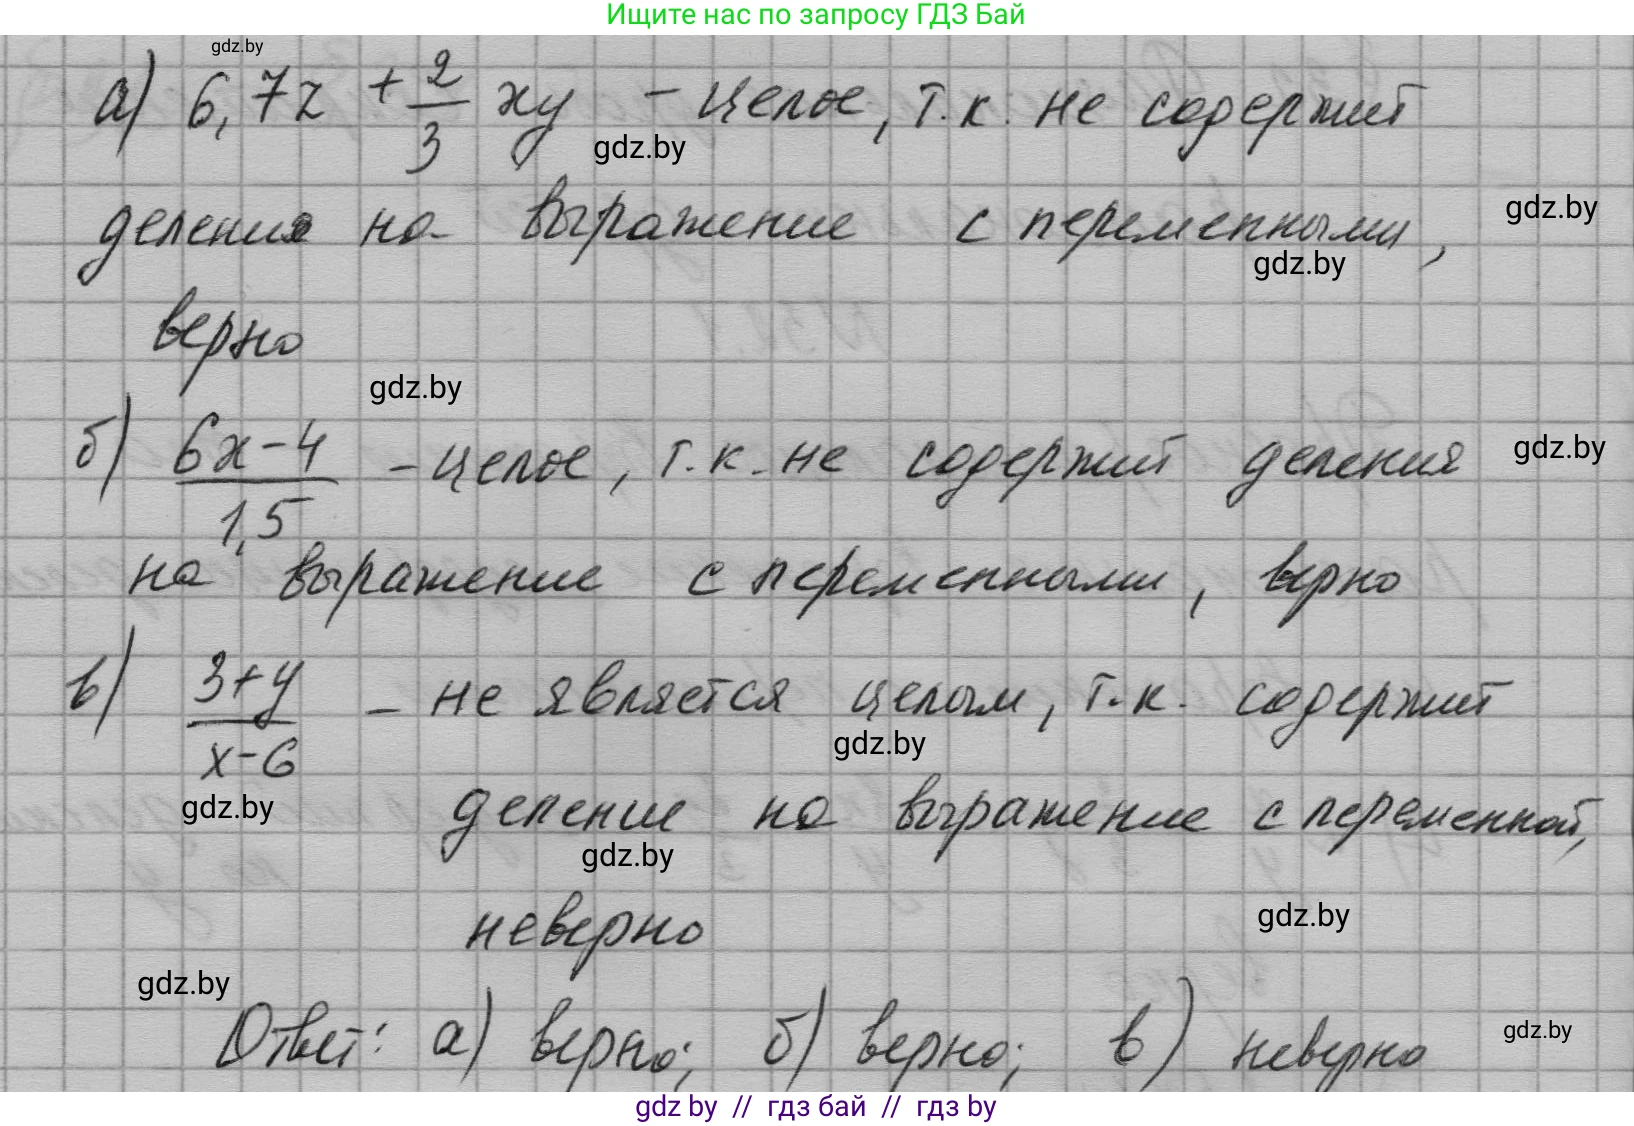 Ищите нас по запросу ГДЗ Бай
gdz.by
а) 6,7z + 2/3 xy - целое, т.к. не содержит
gdz.by
деления на выражение с переменными,
gdz.by
gdz.by
верно
gdz.by
б) (6x-4)/1,5 - целое, т.к. не содержит деления
gdz.by
на выражение с переменными, верно
в) (3+y)/(x-6) - не является целым, т.к. содержит
gdz.by
gdz.by
деление на выражение с переменной,
gdz.by
неверно
gdz.by
gdz.by
Ответ: а) верно; б) верно; в) неверно
gdz.by
gdz by // гдз бай // гдз by